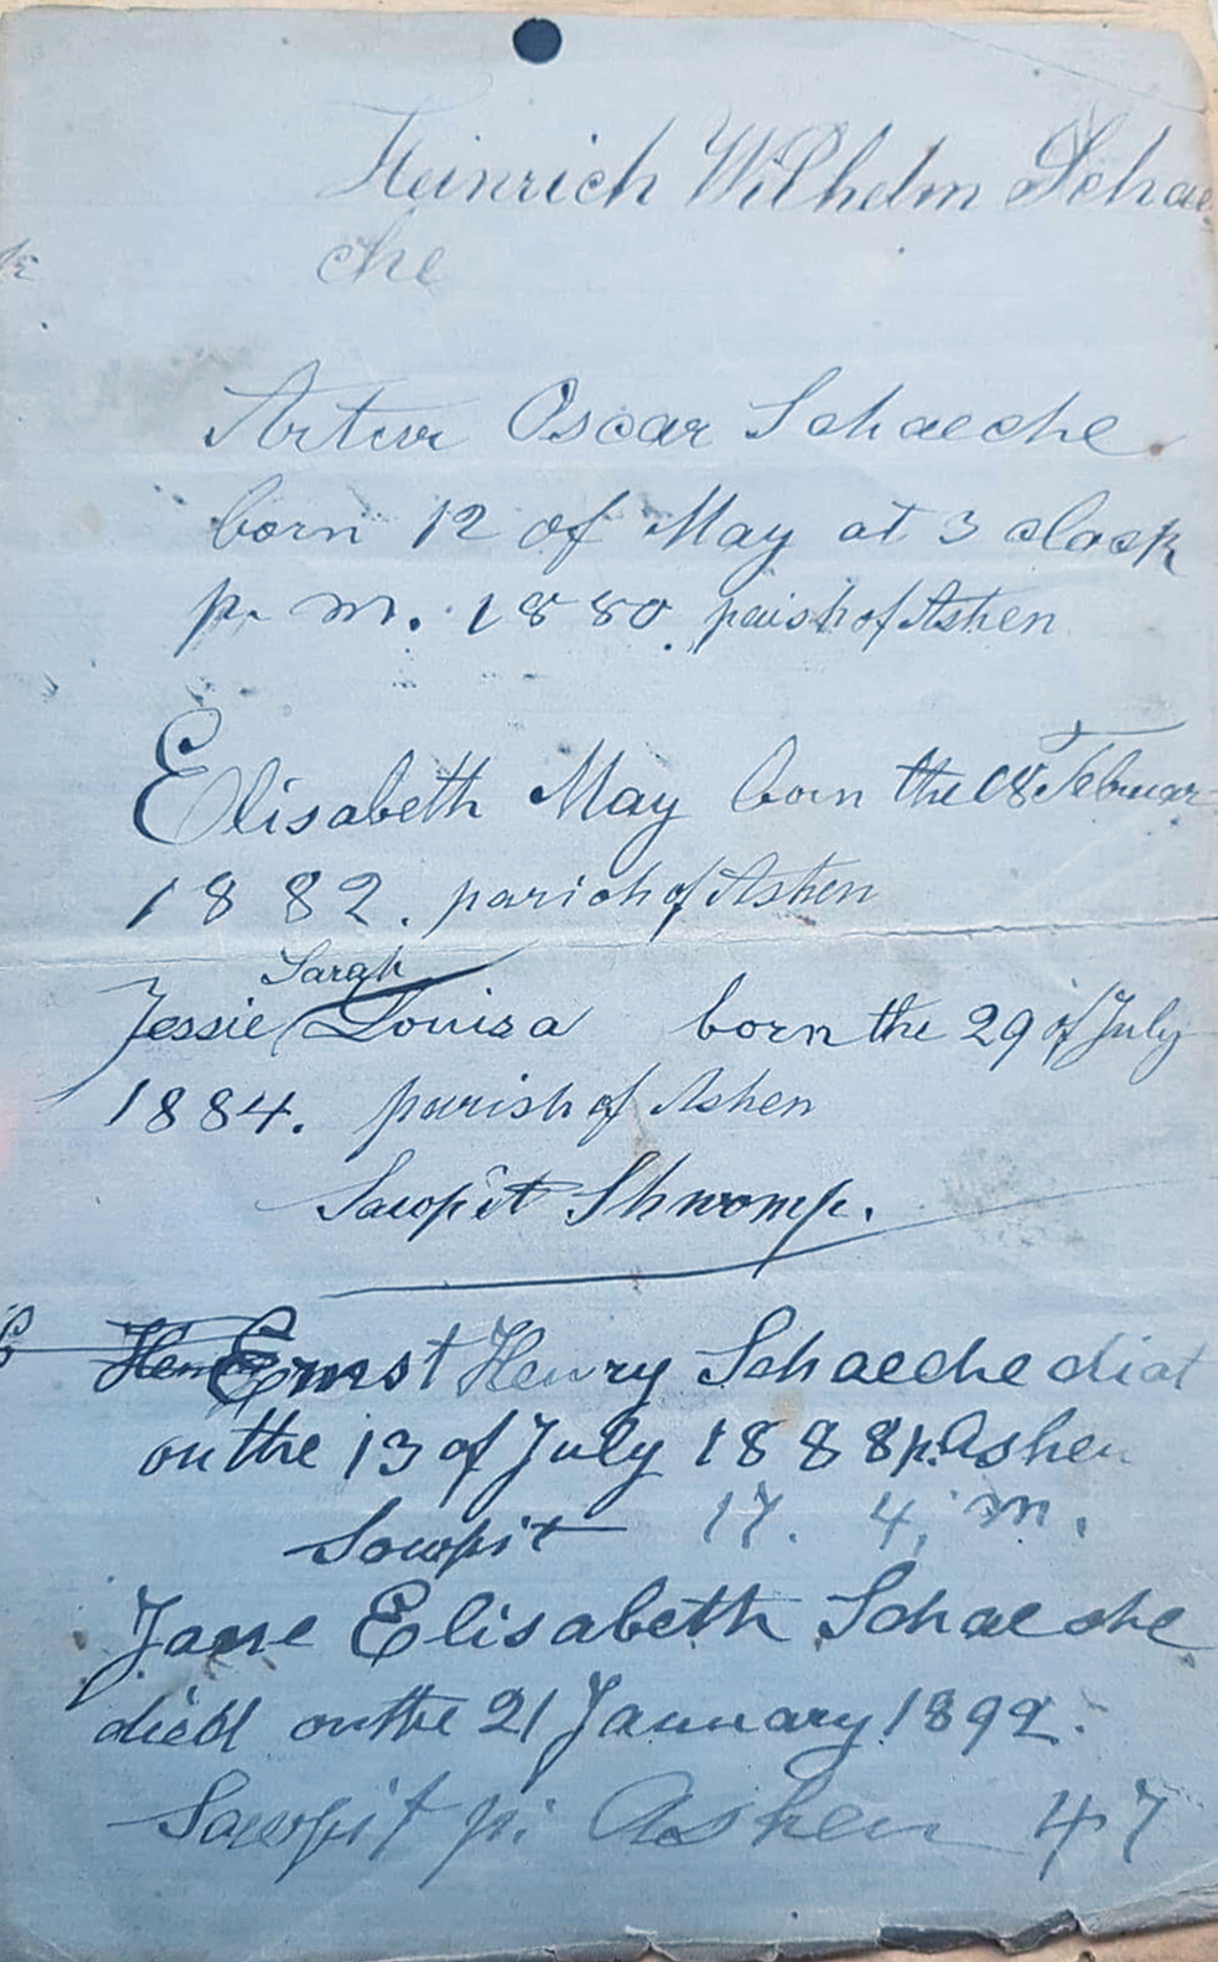 Heinrich Wilhelm Schae
che
Artur Oscar Schaeche
born 12 of May at 3 clock
p. m. 1880. parish of Ashen
Elisabeth May born the 18 Februar
1882. parish of Ashen
Sarah
Jessie Louisa born the 29 of July
1884. parish of Ashen
Sawpit Shwomp.
Ernst Henry Schaeche diat
on the 13 of July 1888 p. Ashen
Sowpit 17. 4. m.
Jane Elisabeth Schaeche
died on the 21 January 1892.
Sawpit p: Ashen 47